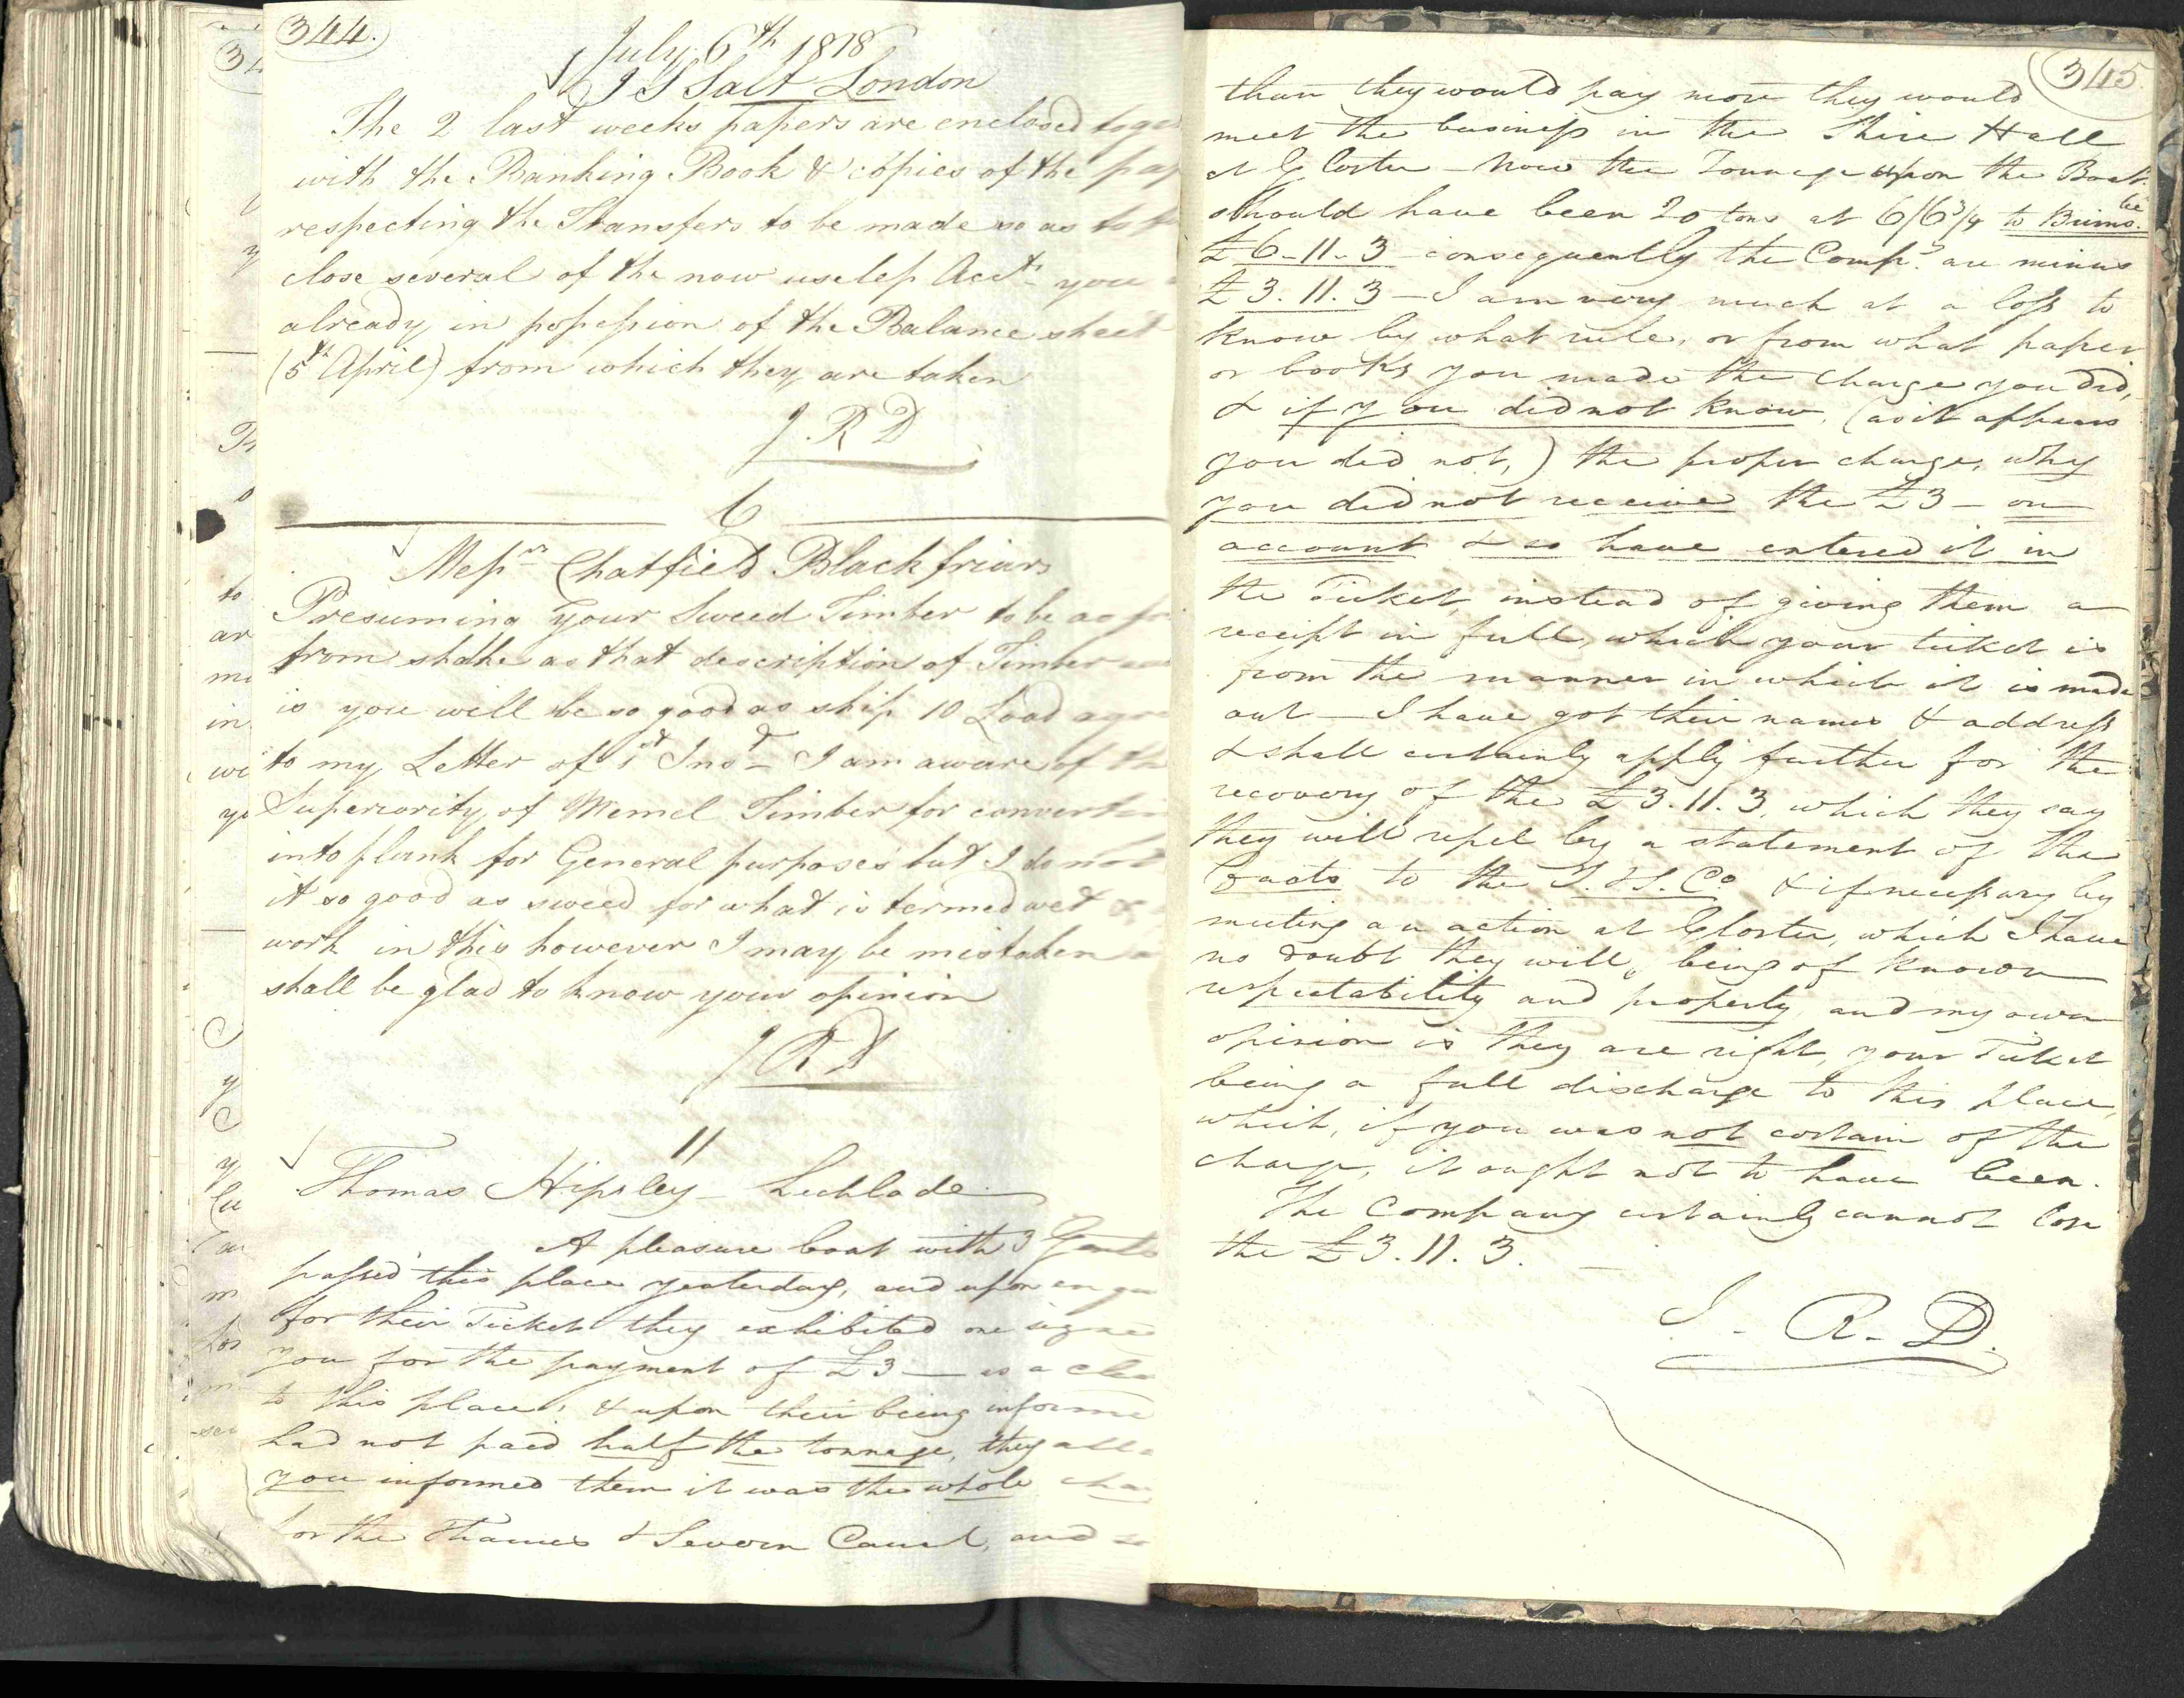 344.
July 6th 1818
J S Salt London
The 2 last weeks papers are enclosed
with the Banking Book & copies of the
respecting the Transfers to be made so as to
close several of the now useless Acctts you
already in possession of the Balance sheet
(5th April) from which they are taken
J. R D
6
Messrs Chatfield Blackfriars
Presuming your Sweed Timber to be as
from shake as that description of Timber
is you will be so good as ship 10 Load
to my Letter of 1st Instt I am aware of
Superiority of Memel Timber for
into plank for General purposes but I do not
it so good as sweed for what is termed wet &
work in this however I may be mistaken
shall be glad to know your opinion
J R D
11
Thomas Hipsley - Lechlade
A pleasure boat with 3
passed this place yesterday, and upon
for their Ticket they exhibited one
you for the payment of £3 — as a
to this place, & upon their being
had not paid half the tonnage, they
you informed them it was the whole
for the Thames & Severn Canal, and
345
than they would pay more they would
meet the business in the Shire Hall
at Gloster - Now the Tonnage upon the Boat
should have been 20 tons at 6/6¾ to Brims
£6-11-3 consequently the Compy are minus
£3.11.3 — I am very much at a loss to
know by what rule, or from what paper
or books you made the charge you did,
& if you did not know, (as it appears
you did not,) the proper charge, why
you did not receive the £3 - on
account & so have entered it in
the Ticket, instead of giving them a
receipt in full, which your ticket is
from the manner in which it is made
out — I have got their names & address
& shall certainly apply further for the
recovery of the £3.11.3, which they say
they will repel by a statement of the
Facts to the T.&S.Co & if necessary by
meeting an action at Gloster, which I have
no doubt they will, being of known
respectability and property, and my own
opinion is they are right, your Ticket
being a full discharge to this place,
which, if you was not certain of the
charge, it ought not to have been.
The Company certainly cannot lose
the £3.11.3. —
J - R - D.